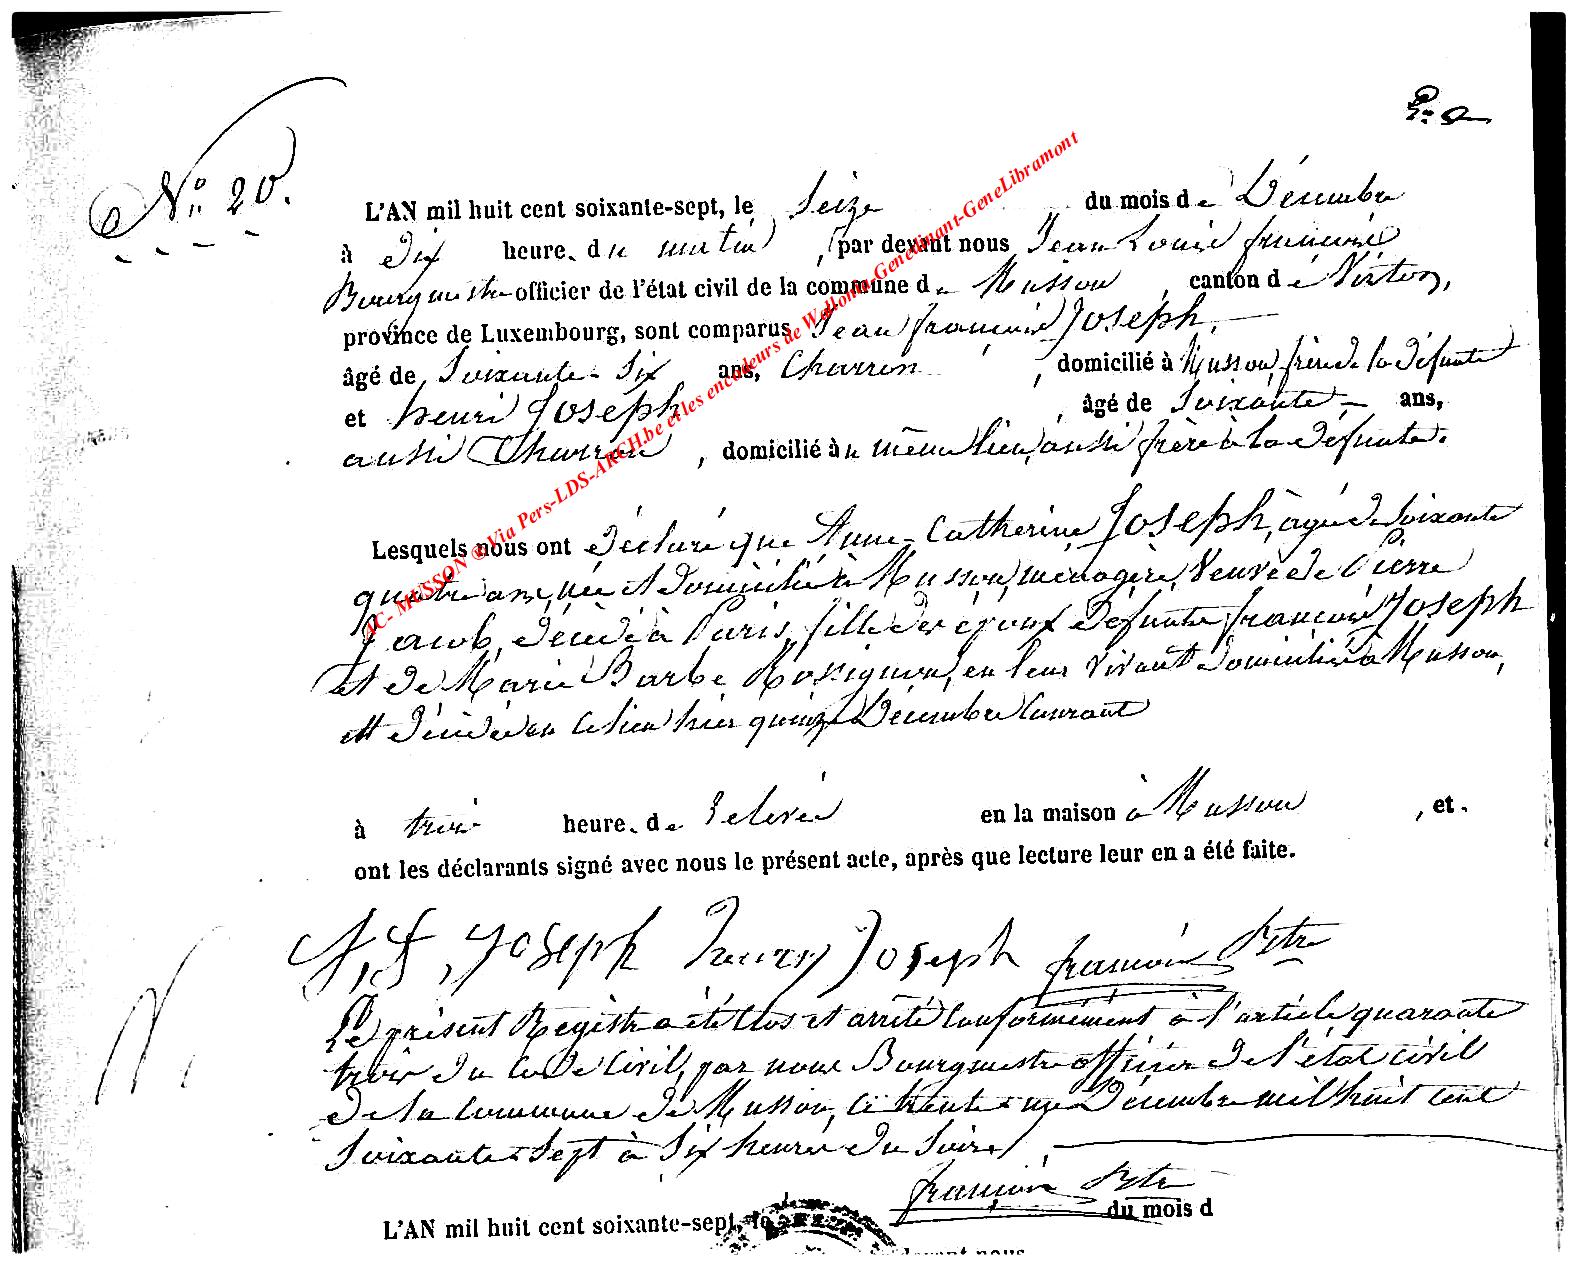 N° 20.
L'AN mil huit cent soixante-sept, le Seize du mois de Décembre
à Dix heure. du matin, par devant nous Jean Louis françois
Bourgmestre officier de l'état civil de la commune de Musson, canton de Virton,
province de Luxembourg, sont comparus Jean françois Joseph,
âgé de Soixante-Six ans, Charron, domicilié à Musson, frère de la défunte
et henri Joseph, âgé de Soixante ans,
aussi Charron, domicilié au même lieu, aussi frère à la défunte.
Lesquels nous ont déclaré que Anne-Catherine Joseph, agée de soixante
quatre ans, née et domiciliée à Musson, ménagère, Veuve de Pierre
Jacob, décédé à Paris, fille des époux défunts françois Joseph
et de Marie Barbe Rossignon, en leur vivant domiciliés à Musson,
est décédée en ce lieu hier quinze Décembre Courant
à trois heure. de relevée en la maison à Musson, et.
ont les déclarants signé avec nous le présent acte, après que lecture leur en a été faite.
J, F, Joseph henry Joseph françois
Le présent Registre a été Clos et arrêté Conformément à l'article quarante
trois du Code Civil, par nous Bourgmestre officier de l'état civil
de la Commune de Musson, ce trente-un Décembre mil huit cent
Soixante-Sept à Six heures du Soir.
françois
L'AN mil huit cent soixante-sept, le du mois d
devant nous
JC- MUSSON ® Via Pers-LDS-ARCH.be et les encodeurs de Wallonia-Genedinant-GeneLibramont